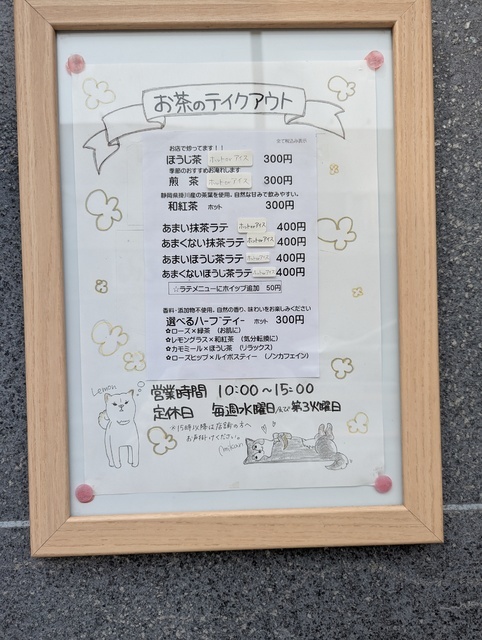 お茶のテイクアウト
全て税込み表示
お店で炒ってます！！
ほうじ茶 ホットorアイス 300円
季節のおすすめお淹れします
煎 茶 ホットorアイス 300円
静岡県掛川産の茶葉を使用。自然な甘みで飲みやすい。
和紅茶 ホット 300円
あまい抹茶ラテ ホットorアイス 400円
あまくない抹茶ラテ ホットorアイス 400円
あまいほうじ茶ラテ ホットorアイス 400円
あまくないほうじ茶ラテ ホットorアイス 400円
☆ラテメニューにホイップ追加 50円
香料・添加物不使用。自然の香り、味わいをお楽しみください
選べるハーブティー ホット 300円
✿ローズ×緑茶 （お肌に）
✿レモングラス×和紅茶 （気分転換に）
✿カモミール×ほうじ茶 （リラックス）
✿ローズヒップ×ルイボスティー （ノンカフェイン）
Lemon
営業時間 10:00〜15:00
定休日 毎週水曜日及び第3火曜日
※15時以降は店舗の方へ
お声掛けください。
mikan